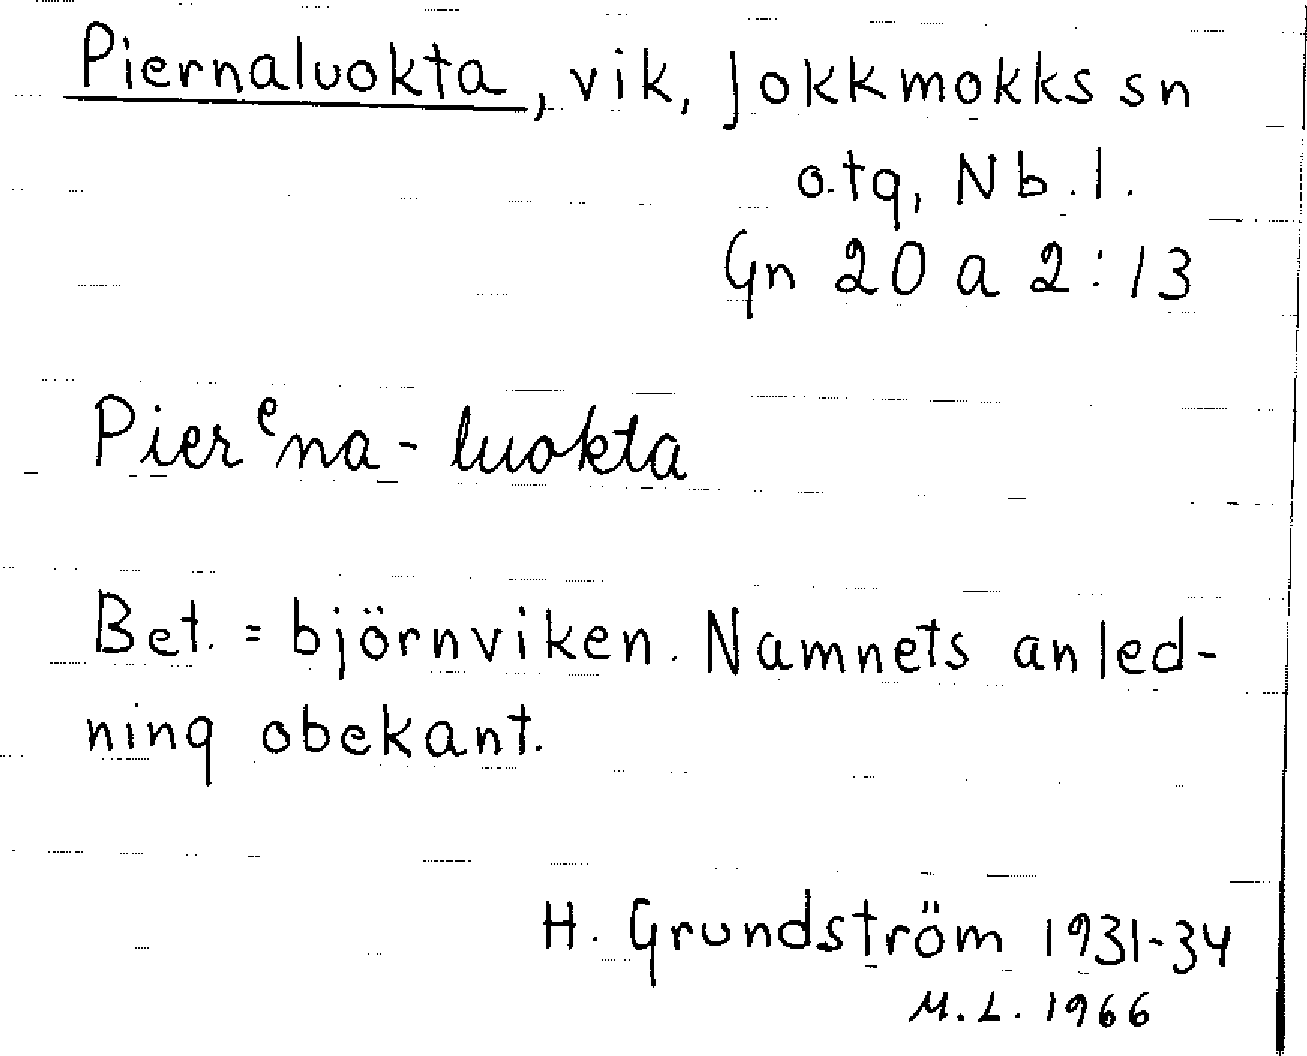 Piernaluokta, vik, Jokkmokks sn
o.tg, Nb.l.
Gn 20 a 2:13
Pierᵉna-luokta
Bet. = björnviken. Namnets anled-
ning obekant.
H. Grundström 1931-34
M.L. 1966